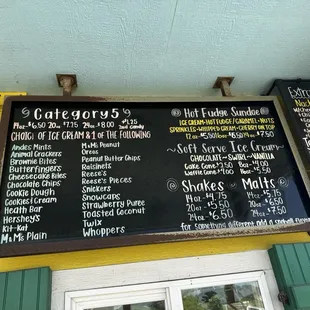 Category 5
14oz $6.50 20oz $7.75 24oz $8.00 + $1.25 2nd Candy
CHOICE OF ICE CREAM & 1 OF THE FOLLOWING
Andes Mints
Animal Crackers
Brownie Bites
Butterfingers
Cheesecake Bites
Chocolate Chips
Cookie Dough
Cookies & Cream
Heath Bar
Hershey's
Kit-Kat
M&Ms Plain
M&Ms Peanut
Oreos
Peanut Butter Chips
Raisinets
Reese's
Reese's Pieces
Snickers
Snowcaps
Strawberry Puree
Toasted Coconut
Twix
Whoppers
Hot Fudge Sundae
ICE CREAM-HOT FUDGE/CARAMEL-NUTS
SPRINKLES-WHIPPED CREAM-CHERRY ON TOP
Soft Serve Ice Cream
CHOCOLATE~SWIRL~VANILLA
Cake Cone
Waffle Cone
Shakes
14oz
20oz
24oz $6.50
Malts
14oz $5.75
20oz $6.50
24oz $7.50
For something different add a soft
Extra